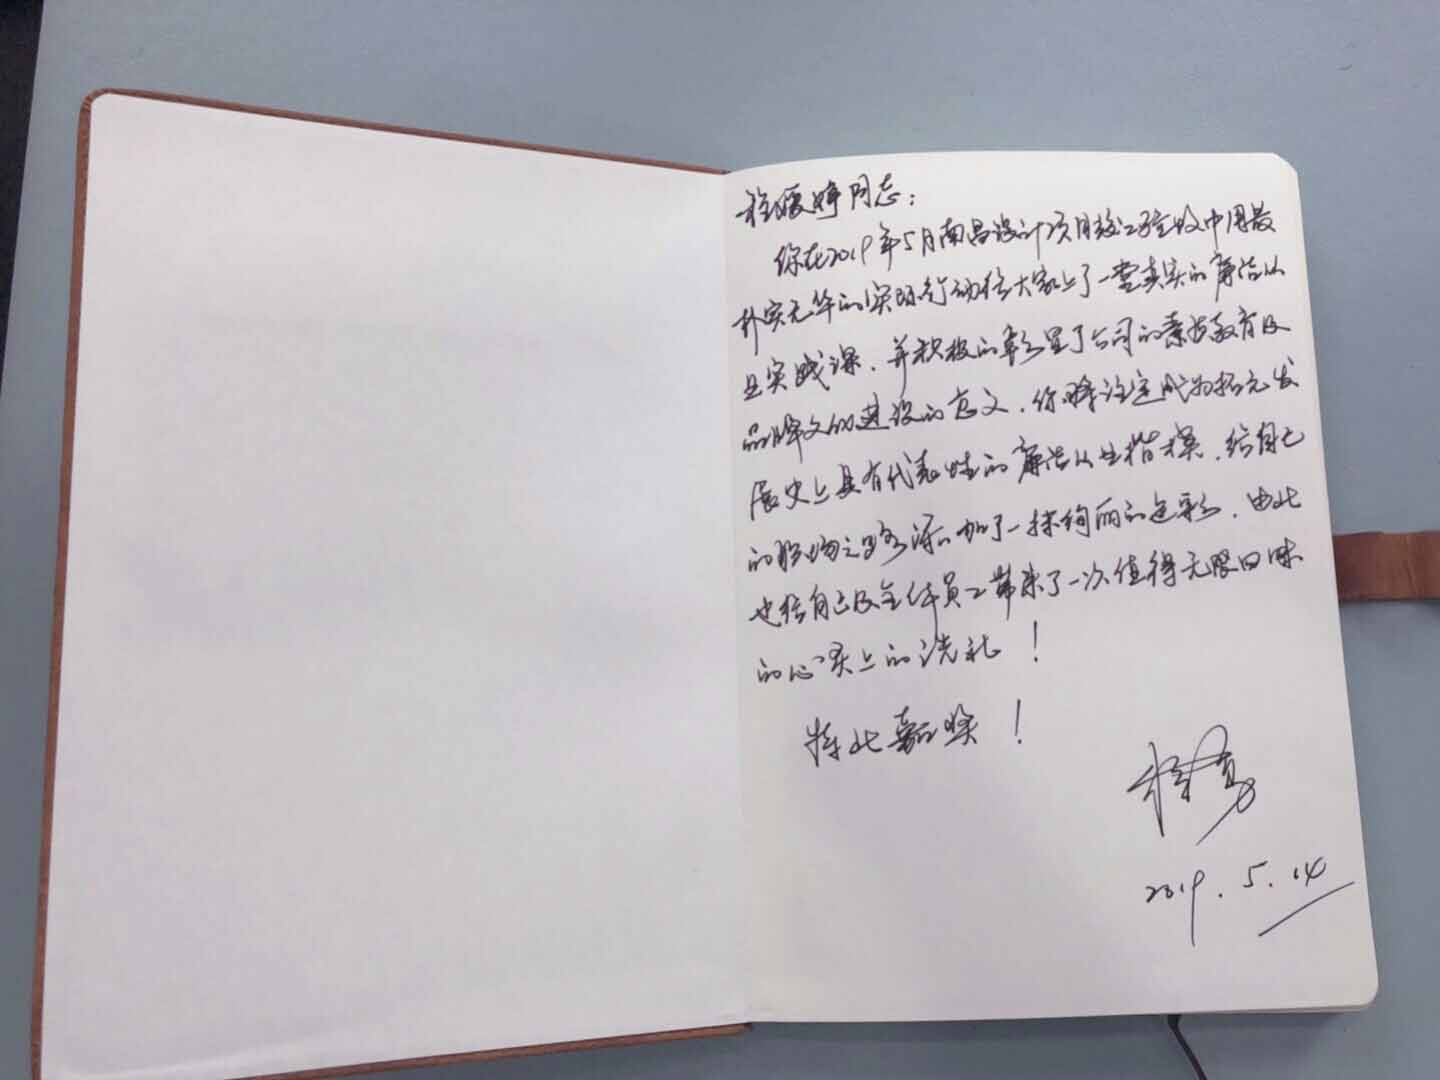 程媛婷同志：
你在2019年5月南昌设计项目竣工验收中用最
朴实无华的实际行动给大家上了一堂真实的廉洁从
业实践课，并积极的彰显了公司的素质教育及
品牌文化建设的意义，你将注定成为拓元发
展史上具有代表性的廉洁从业楷模，给自己
的职场之路添加了一抹绚丽的色彩，由此
也给自己及全体员工带来了一次值得无限回味
的心灵上的洗礼！
特此嘉奖！
2019.5.14